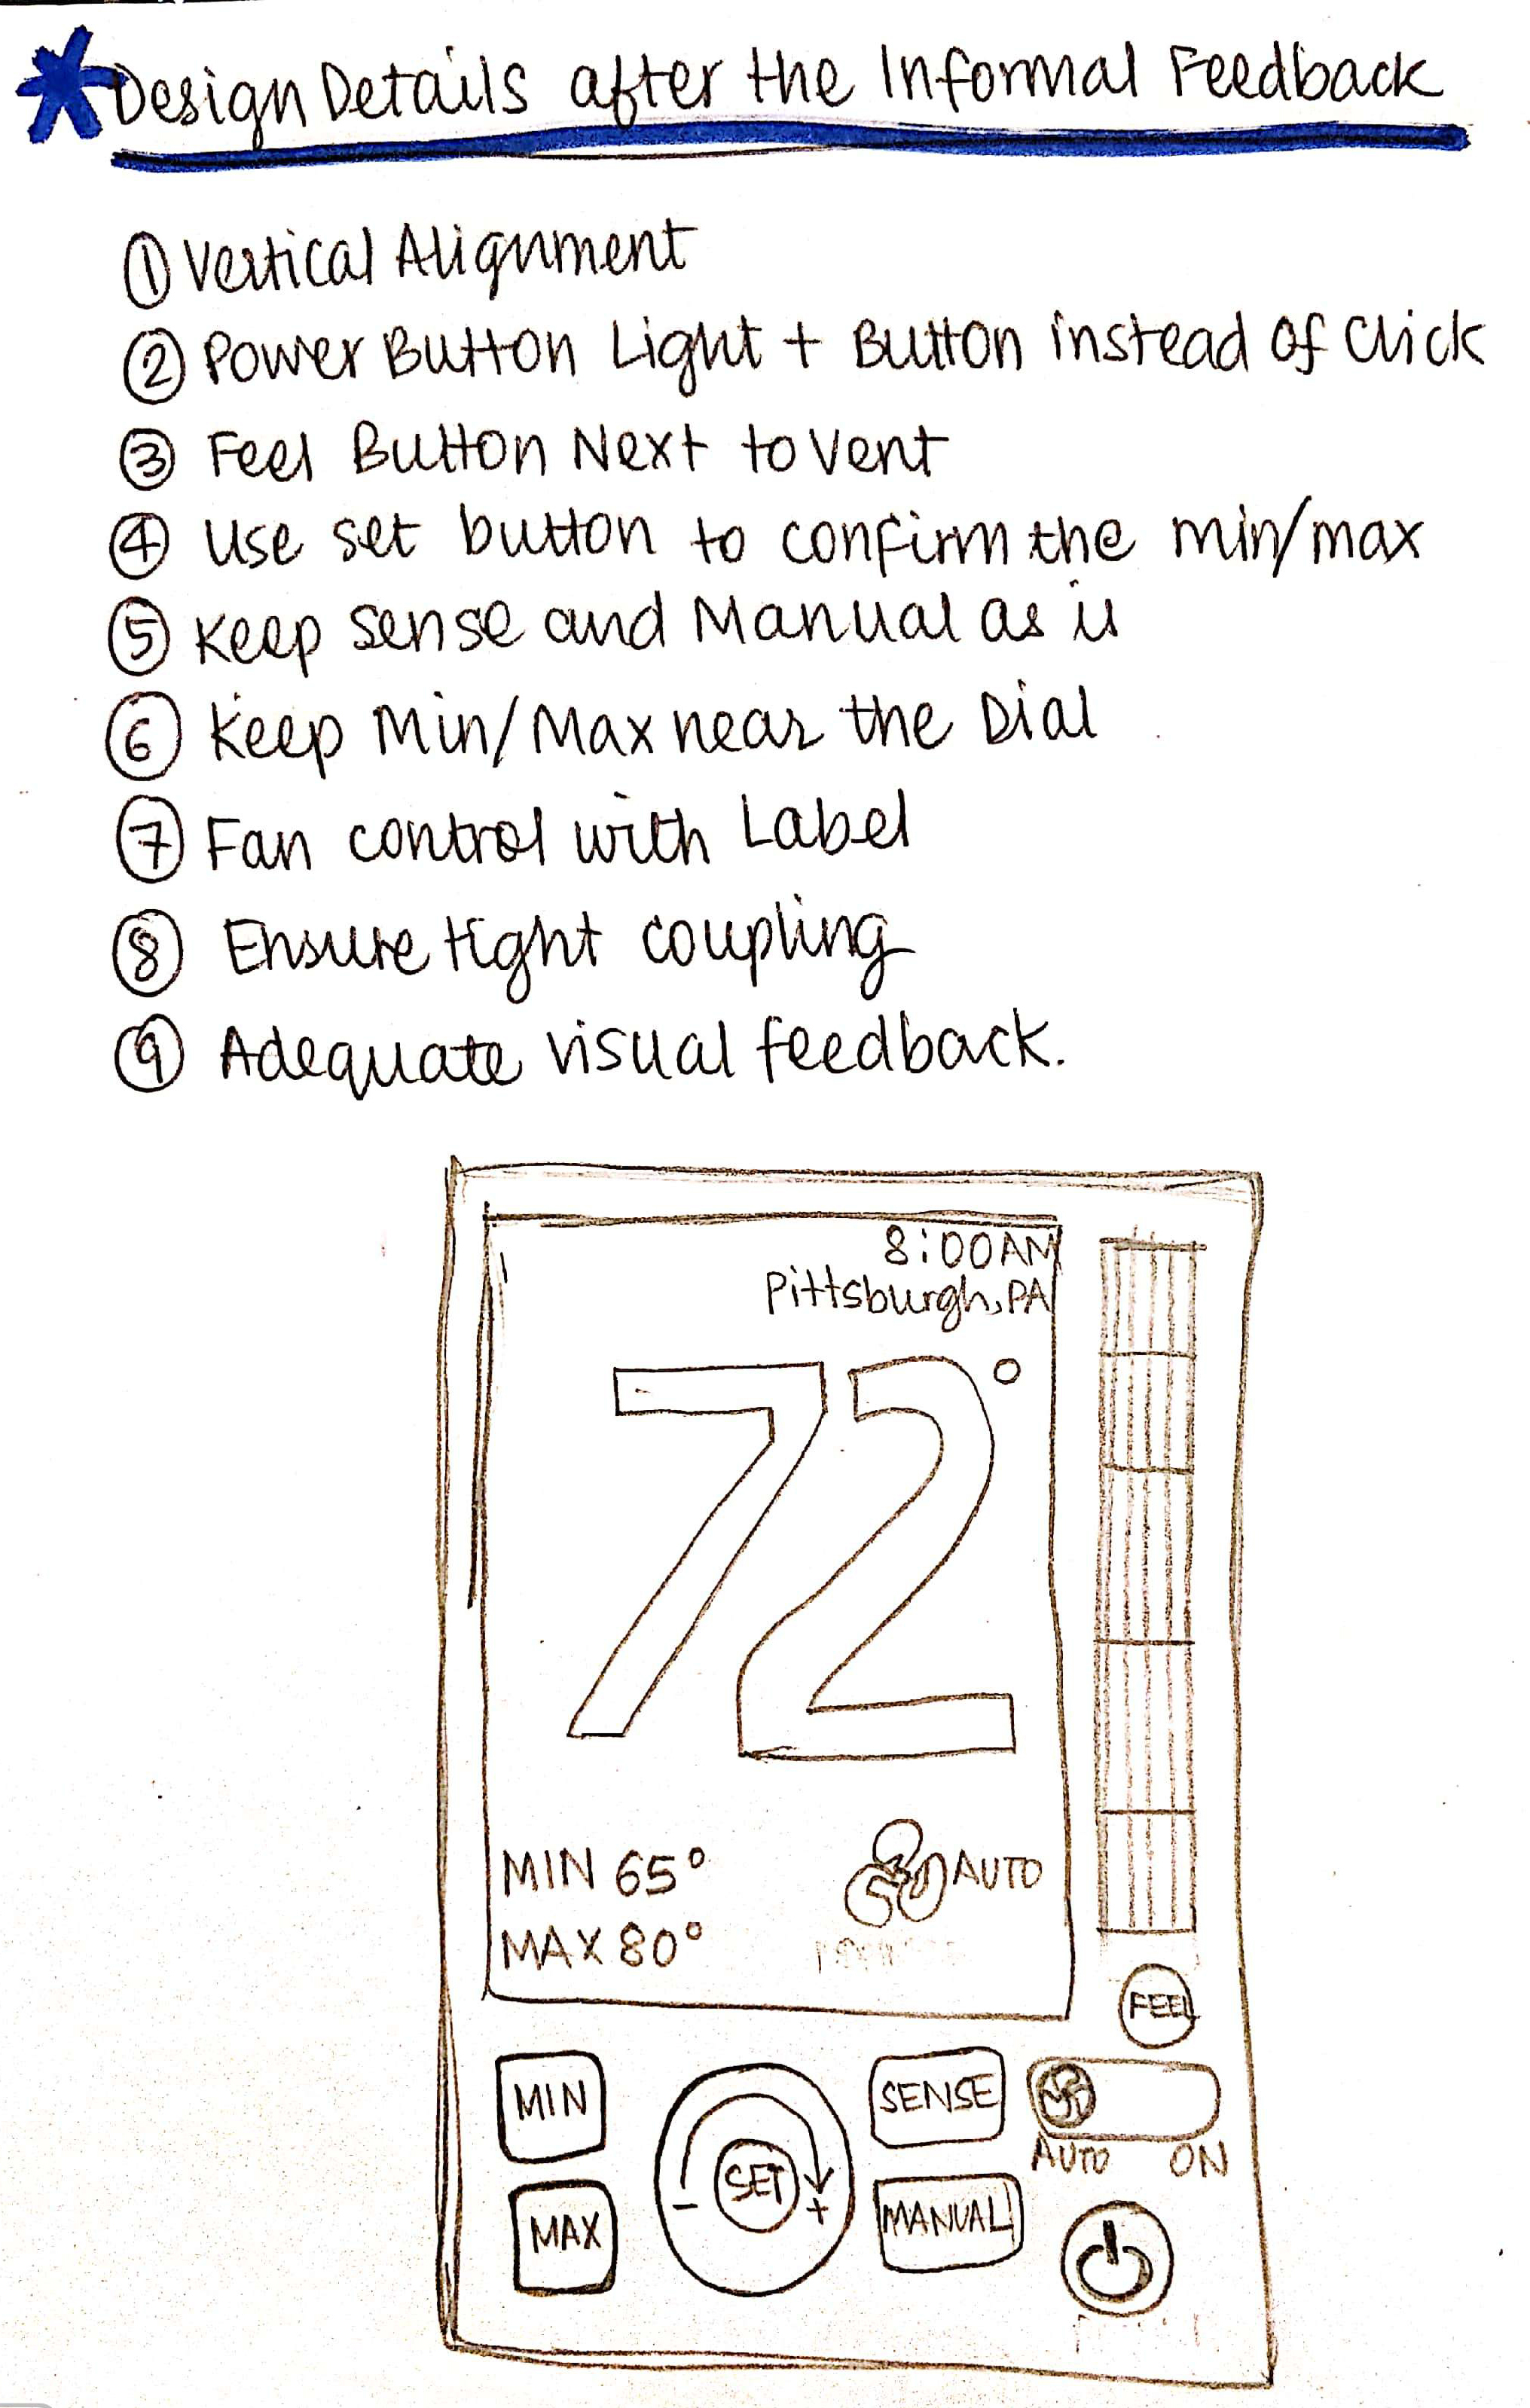 Design Details after the Informal Feedback
① Vertical Alignment
② Power Button Light + Button instead of Click
③ Feel Button Next to Vent
④ Use set button to confirm the min/max
⑤ Keep sense and Manual as is
⑥ Keep Min/Max near the Dial
⑦ Fan control with Label
⑧ Ensure tight coupling
⑨ Adequate visual feedback.
8:00AM
Pittsburgh, PA
72°
MIN 65°
AUTO
MAX 80°
FEEL
MIN
SENSE
SET
- +
AUTO ON
MAX
MANUAL